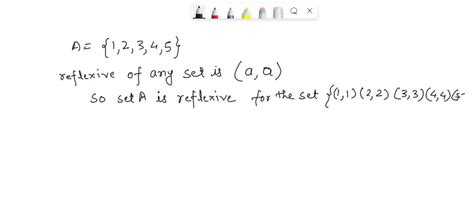 A = {1,2,3,4,5}
reflexive of any set is (a, a)
So set A is reflexive for the set {(1,1)(2,2)(3,3)(4,4)(5-